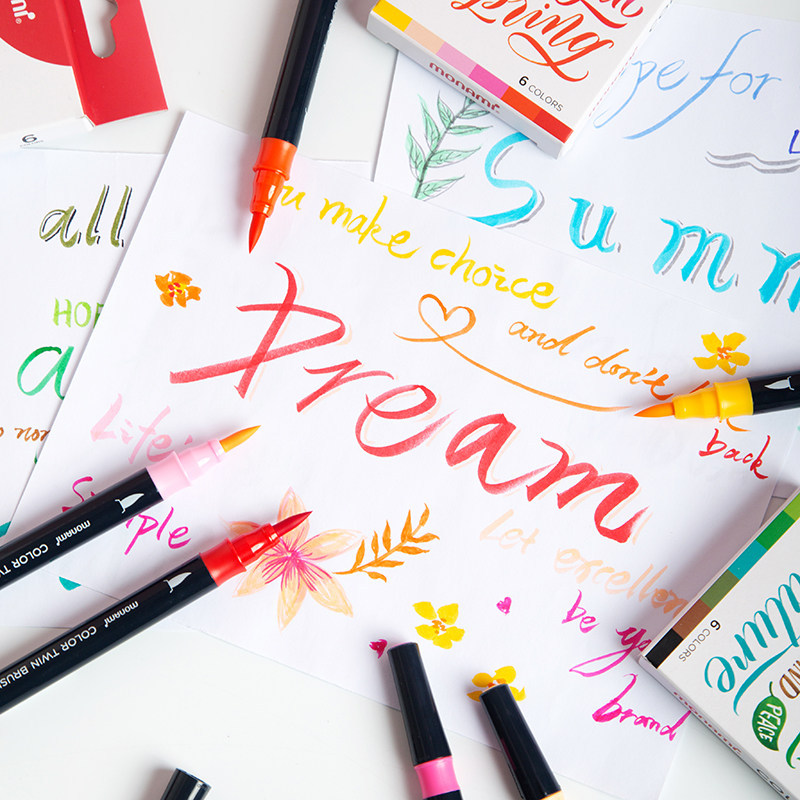 monami
6
Spring
monami
6 COLORS
pe for
Summ
all
u make choice
and don't
back
HOP
a
Dream
Life
ple
Let excellen
be yo
brand
monami COLOR TWIN
monami COLOR TWIN BRUSH
6 COLORS
nature
AND
PEACE